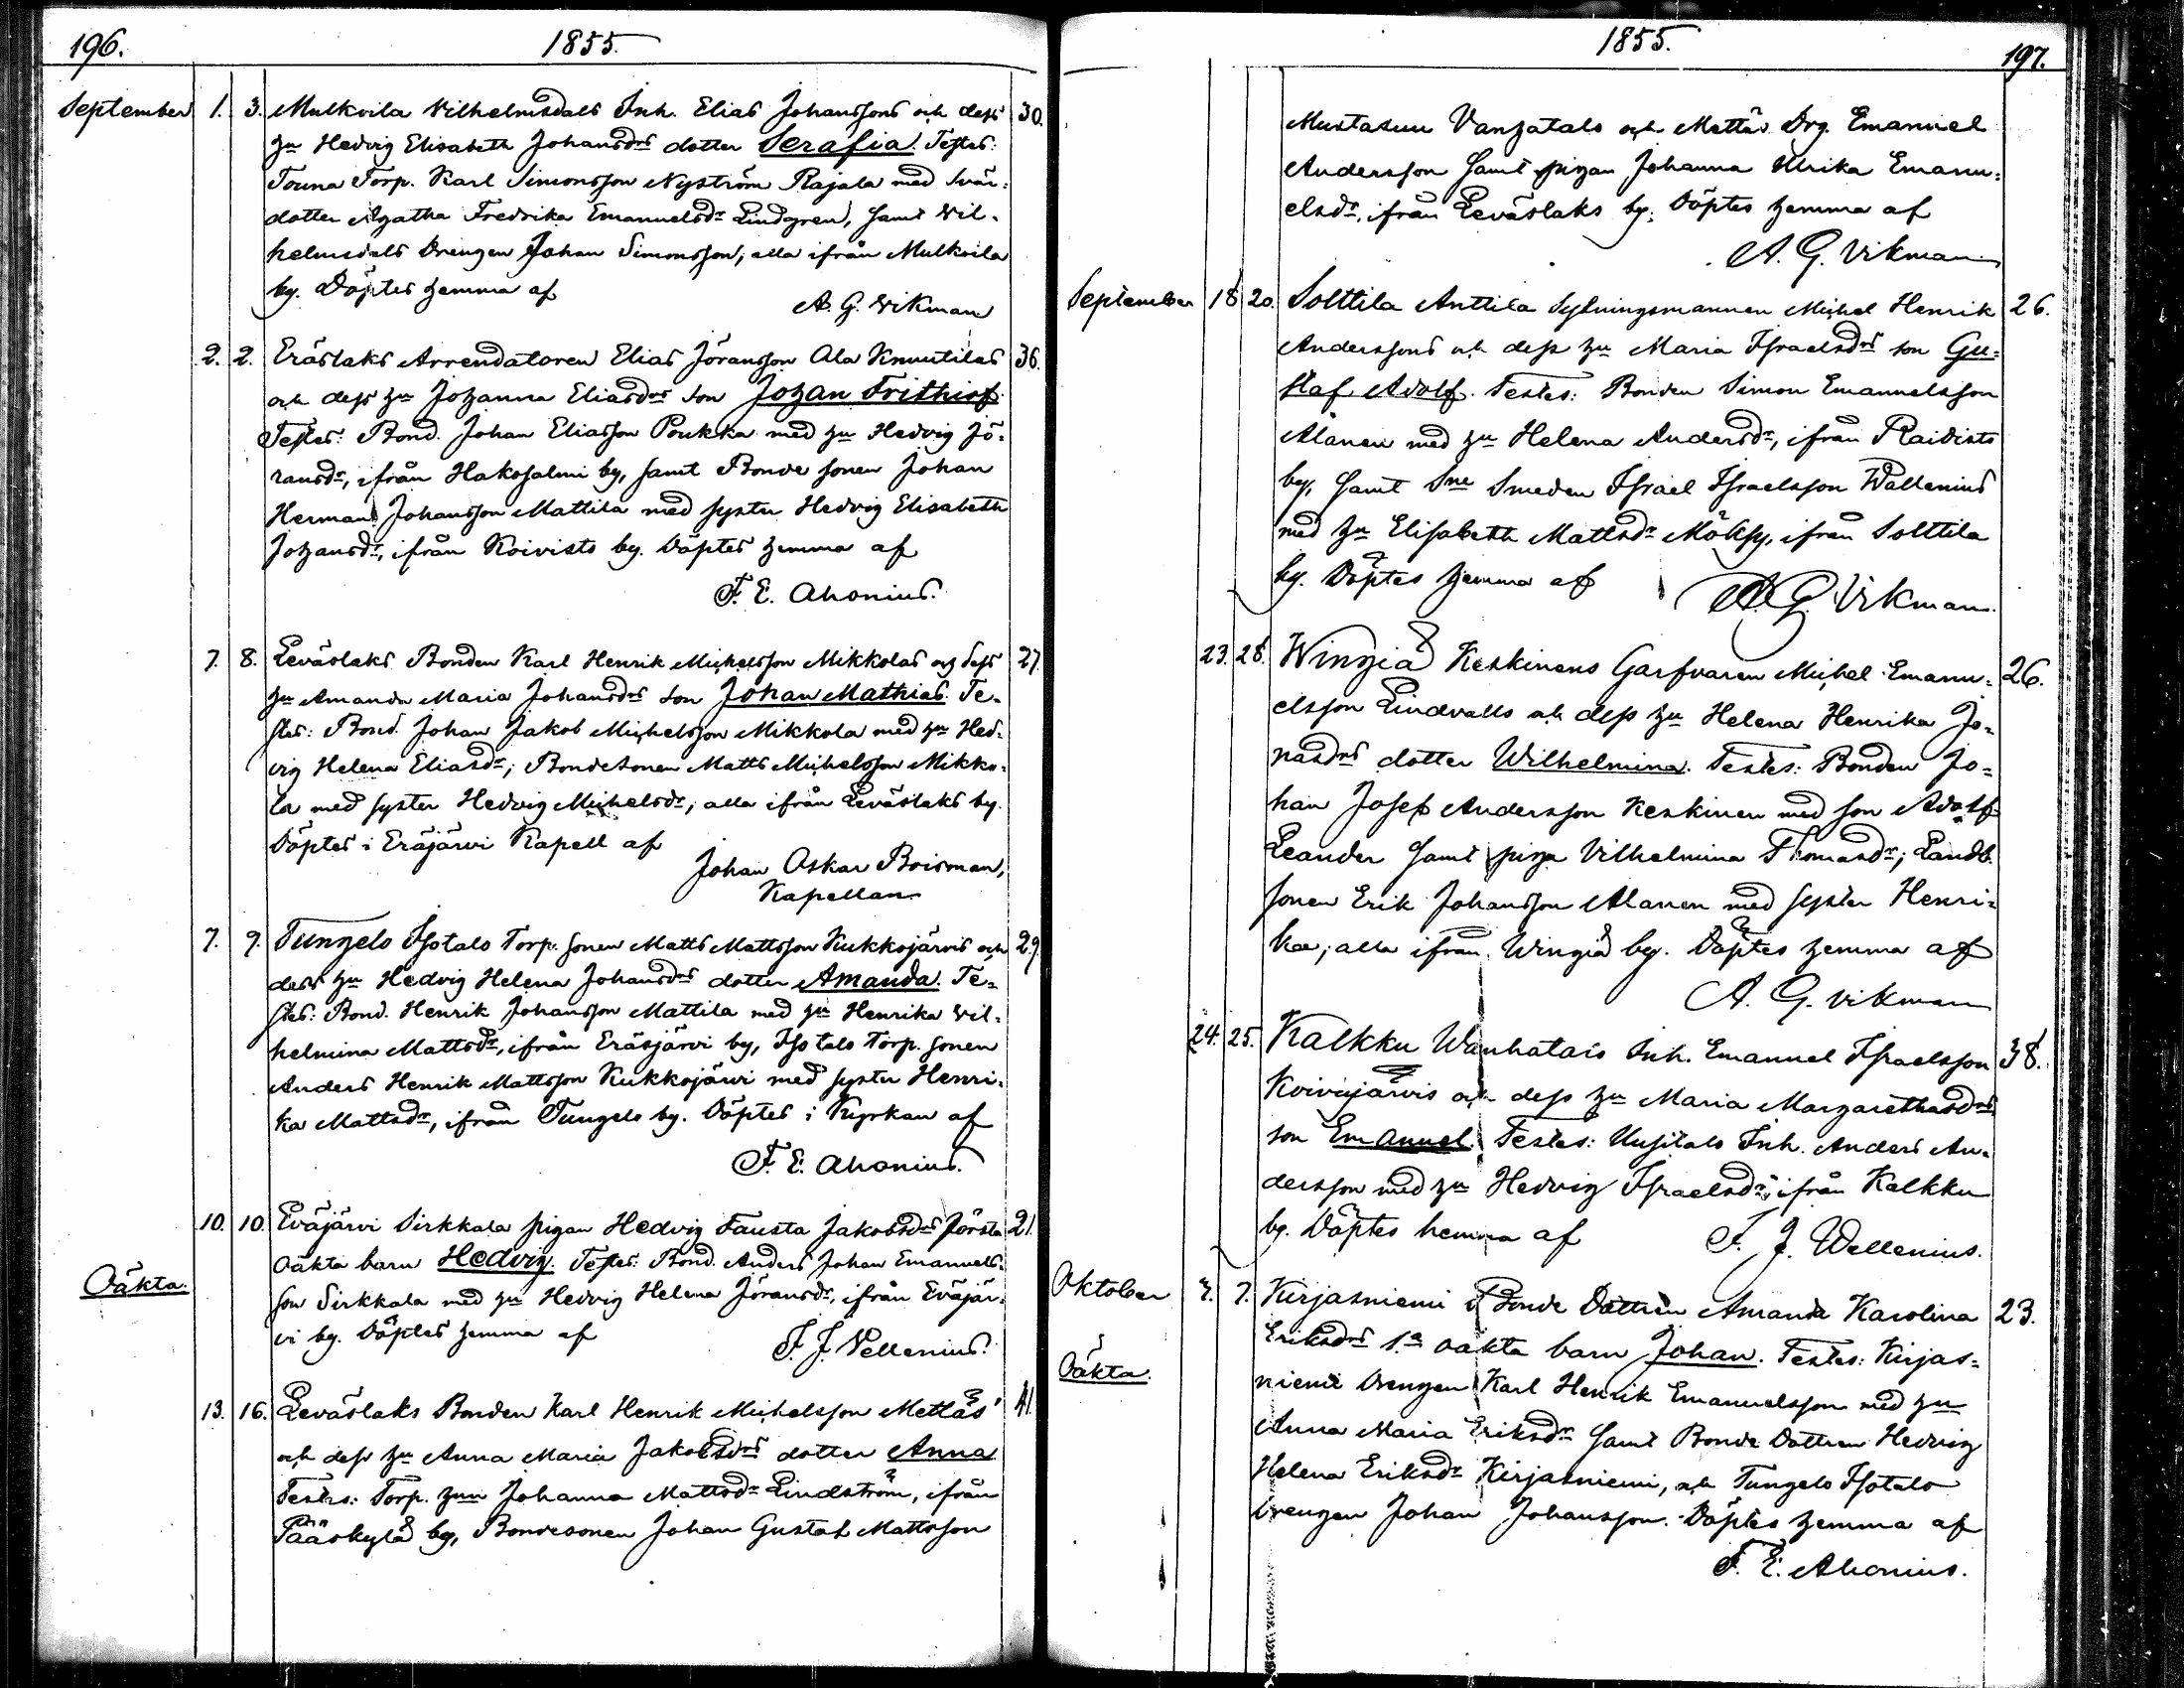 196. 1855.
September 1. 3. Mulkoila Vilhelmsdals Inh. Elias Johanssons och dess 30.
hu Hedvig Elisabeth Johansdrs dotter Serafia. Testes:
Torp. Karl Simonsson Nyström Rajala med Svär-
dotter Agatha Fredrika Emanuelsdr Lindgren, samt Vil-
helmsdals Drengen Johan Simonsson, alla ifrån Mulkoila
by. Döptes hemma af
A. G. Vikman
2. 2. Eräslaks Arrendatoren Elias Jöransson Ala Knuutilas 36.
och dess hu Johanna Eliasdrs son Johan Frithiof.
Testes: Bond. Johan Eliasson Poukka med hu Hedvig Jö-
ransdr, ifrån Hakosalmi by, samt Bonde sonen Johan
Herman Johansson Mattila med syster Hedvig Elisabeth
Johansdr, ifrån Koivisto by. Döptes hemma af
F. E. Ahonius.
7. 8. Leväslaks Bonden Karl Henrik Michelsson Mikkolas och dess 27.
hu Amanda Maria Johansdrs son Johan Mathias. Te-
stes: Bond. Johan Jakob Michelsson Mikkola med hu Hed-
vig Helena Eliasdr; Bondesonen Matts Michelsson Mikko-
la med syster Hedvig Michelsdr, alla ifrån Leväslaks by.
Döptes i Eräjärvi Kapell af
Johan Oskar Boisman,
Kapellan
7. 9. Tungelo Isotalo Torp. sonen Matts Mattsson Kukkojärvis och 29.
dess hu Hedvig Helena Johansdrs dotter Amanda. Te-
stes: Bond. Henrik Johansson Mattila med hu Henrika Vil-
helmina Mattsdr, ifrån Eräsjärvi by, Isotalo Torp. sonen
Anders Henrik Mattsson Kukkojärvi med syster Henri-
ka Mattsdr, ifrån Tungelo by. Döptes i Kyrkan af
F. E. Ahonius.
10. 10. Eväjärvi Sirkkala pigan Hedvig Fausta Jakobsdrs första 21.
oäkta barn Hedvig. Testes: Bond. Anders Johan Emanuels-
Oäkta. son Sirkkala med hu Hedvig Helena Jöransdr, ifrån Eväjär-
vi by. Döptes hemma af
F. J. Vellenius.
13. 16. Leväslaks Bonden Karl Henrik Michelsson Mettäs 41.
och dess hu Anna Maria Jakobsdrs dotter Anna
Testes: Torp. hun Johanna Mattsdr Lindström, ifrån
Pääskylä by, Bondesonen Johan Gustaf Mattsson
1855. 197.
Mustasuu Vanhatalo och Mettäs Drg. Emanuel
Andersson samt pigan Johanna Ulrika Emanu-
elsdr, ifrån Leväslaks by. Döptes hemma af
A. G. Vikman
September 18 20. Solttila Anttila Sytningsmannen Michel Henrik 26.
Anderssons och dess hu Maria Israelsdrs son Gu-
staf Adolf. Testes: Bonden Simon Emanuelsson
Alanen med hu Helena Andersdr, ifrån Raidisto
by, samt Sne Smeden Israel Israelsson Wallenius
med hu Elisabeth Mattsdr Möksy, ifrån Solttila
by. Döptes hemma af
A. G. Vikman.
23. 28. Winhiä Keskinens Garfvaren Michel Emanu- 26.
elsson Lindvalls och dess hu Helena Henrika Jo-
nasdrs dotter Wilhelmina. Testes: Bonden Jo-
han Josef Andersson Keskinen med son Adolf
Leander samt piga Vilhelmina Thomasdr; Landb.
sonen Erik Johansson Alanen med syster Henri-
ka, alla ifrån Winhiä by. Döptes hemma af
A. G. Vikman
24. 25. Kalkku Wanhatalo Inh. Emanuel Israelsson 38.
Koivujärvis och dess hu Maria Margarethasdrs
son Emanuel. Testes: Uusitalo Inh. Anders An-
dersson med hu Hedvig Israelsdr, ifrån Kalkku
by. Döptes hemma af F. J. Wellenius.
Oktober 7. 7. Kirjasniemi Bonde Dottren Amanda Karolina 23.
Eriksdrs 1:a oäkta barn Johan. Testes: Kirjas-
Oäkta. niemi Drengen Karl Henrik Emanuelsson med hu
Anna Maria Eriksdr samt Bonde Dottren Hedvig
Helena Eriksdr Kirjasniemi, och Tungelo Isotalo
Drengen Johan Johansson. Döptes hemma af
F. E. Ahonius.